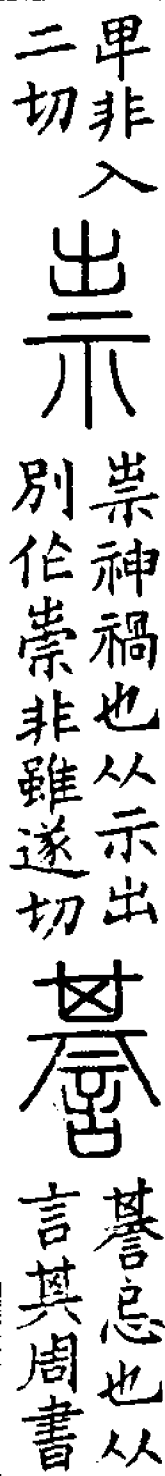 甲非入
二切
祟
祟神禍也从示出
別作非雖遂切
諅
諅忌也从
言其周書